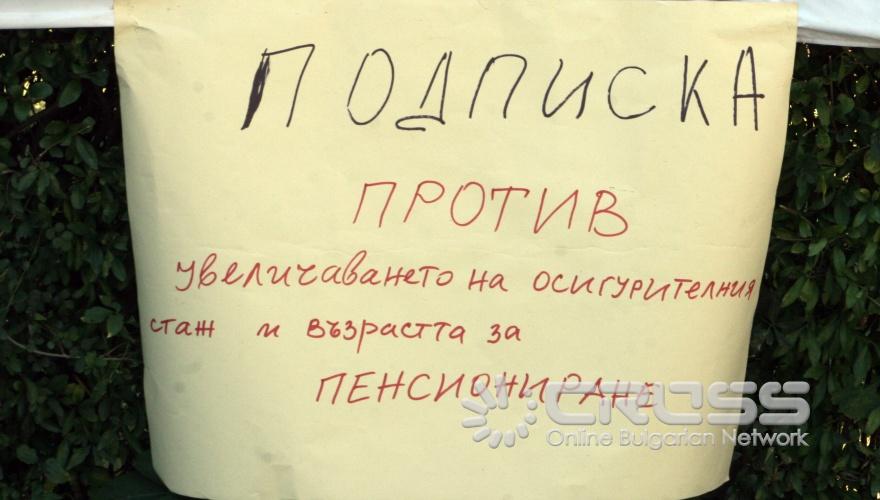 ПОДПИСКА
ПРОТИВ
увеличаването на осигурителния
стаж и възрастта за
ПЕНСИОНИРАНЕ
CROSS
Online Bulgarian Network